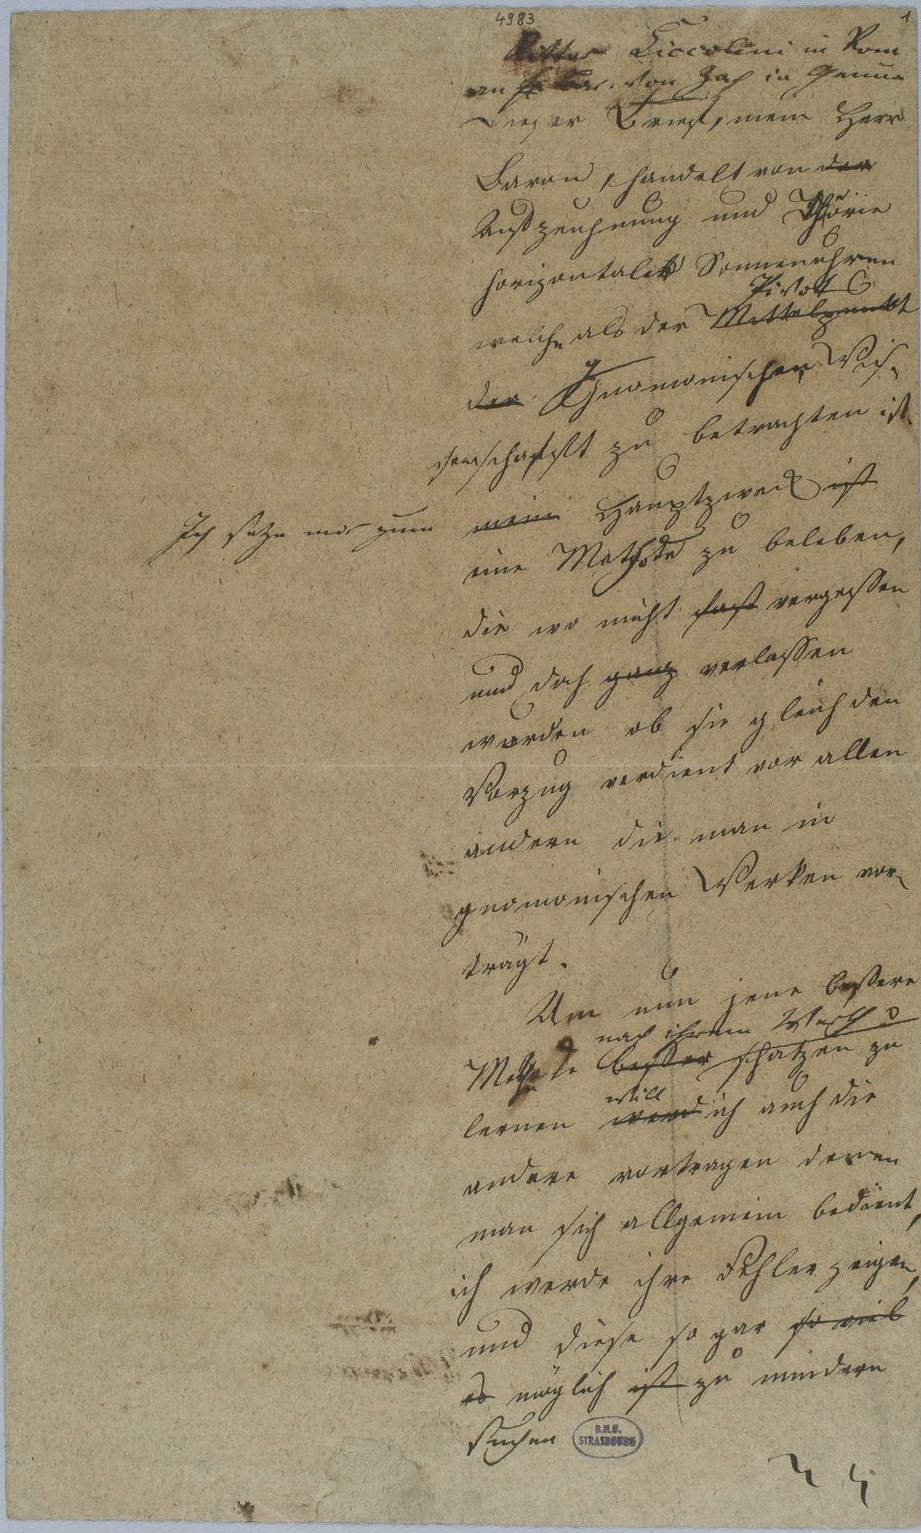 4983
1
Ritter Ciccolini in Rom
an H. Bar. von Zach in Genua
Dieser Brief, mein Herr
Baron, handelt von der
Aufzeichnung und Theorie
horizontaler Sonnenuhren
Pivot
welche als der Mittelpunkt
der Gnomonischen Wis-
senschafft zu betrachten ist.
Ich setze mir zum
mein Hauptzweck ist
eine Methode zu beleben,
die wo nicht fast vergessen
und doch ganz verlassen
worden ob sie gleich den
Vorzug verdient vor allen
andern die man in
gnomonischen Werken vor-
trägt.
Um nun jene bessere
nach ihrem Werth
Methode besser schätzen zu
will
lernen werd ich auch die
andere vortragen deren
man sich allgemein bedient,
ich werde ihre Fehler zeigen,
und diese so gar so viel
es möglich ist zu mindern
suchen
B.N.U.
STRASBOURG